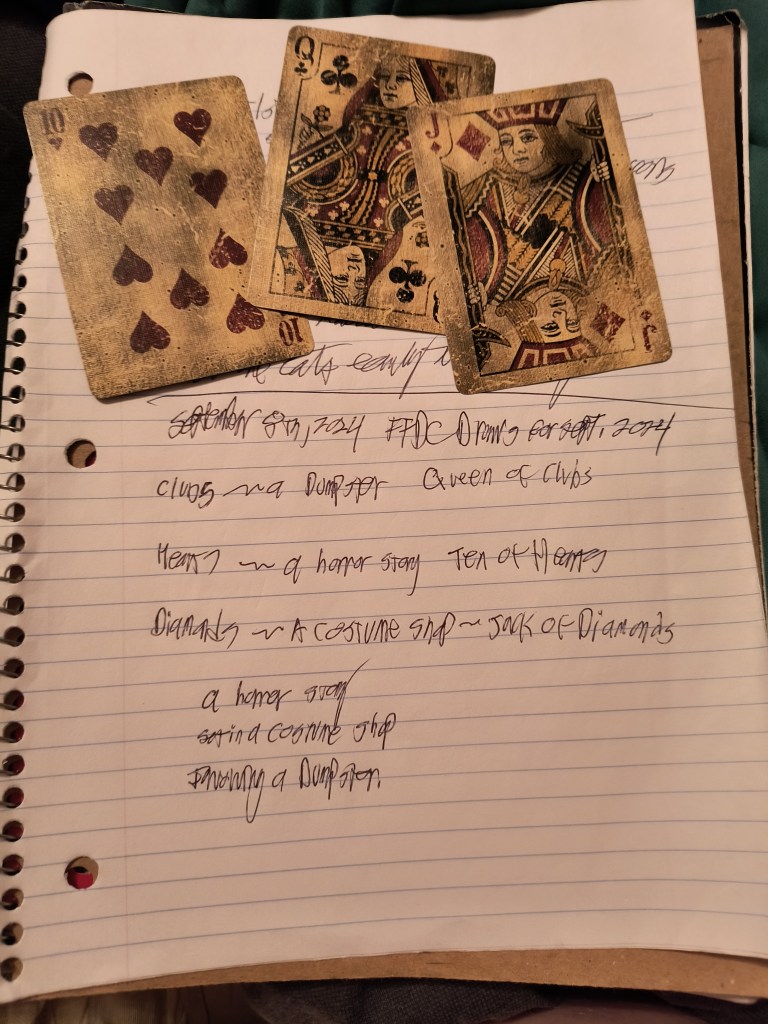 10
Q
J
September 8th, 2024 FFDC Draws for Sept. 2024
Clubs ~ a Dumpster Queen of Clubs
Hearts ~ a horror story Ten of Hearts
Diamonds ~ A costume shop ~ Jack of Diamonds
a horror story
set in a costume shop
Involving a Dumpster.
10
J